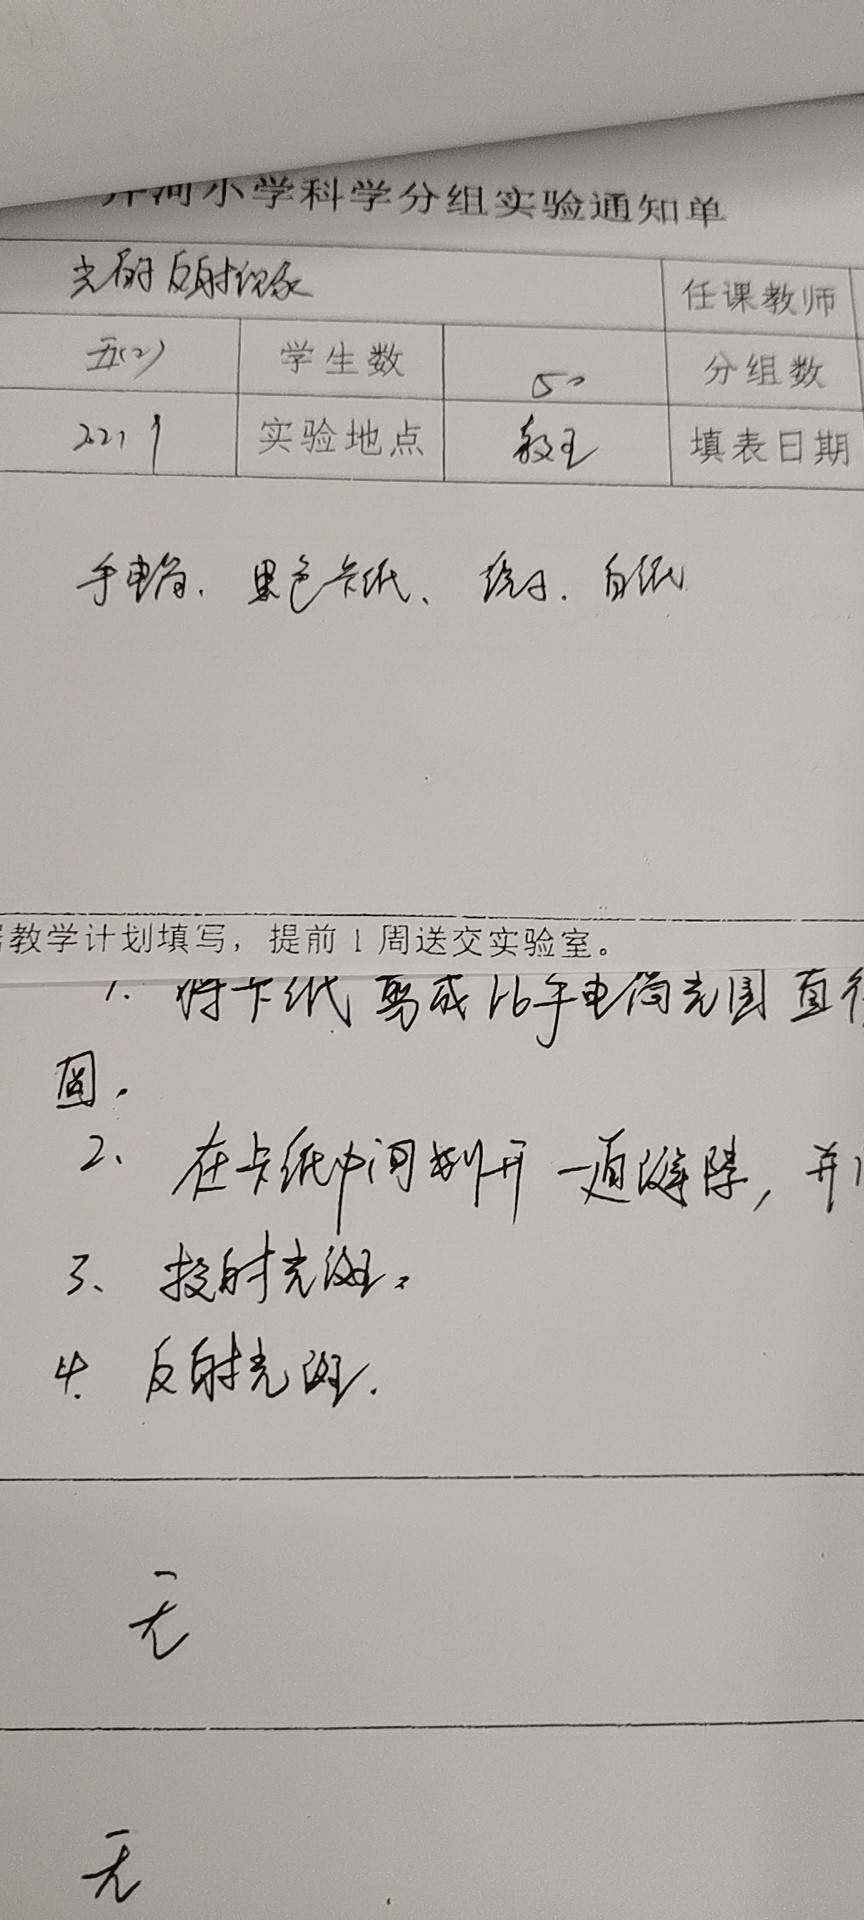 河小学科学分组实验通知单
光的反射现象 任课教师
五(2) 学生数 50 分组数
实验地点 教室 填表日期
手电筒、黑色卡纸、镜子、白纸
教学计划填写，提前1周送交实验室。
1. 将卡纸剪成比手电筒光圈直径
圆。
2、在卡纸中间划开一道缝隙，并
3、投射光斑。
4. 反射光斑.
无
无